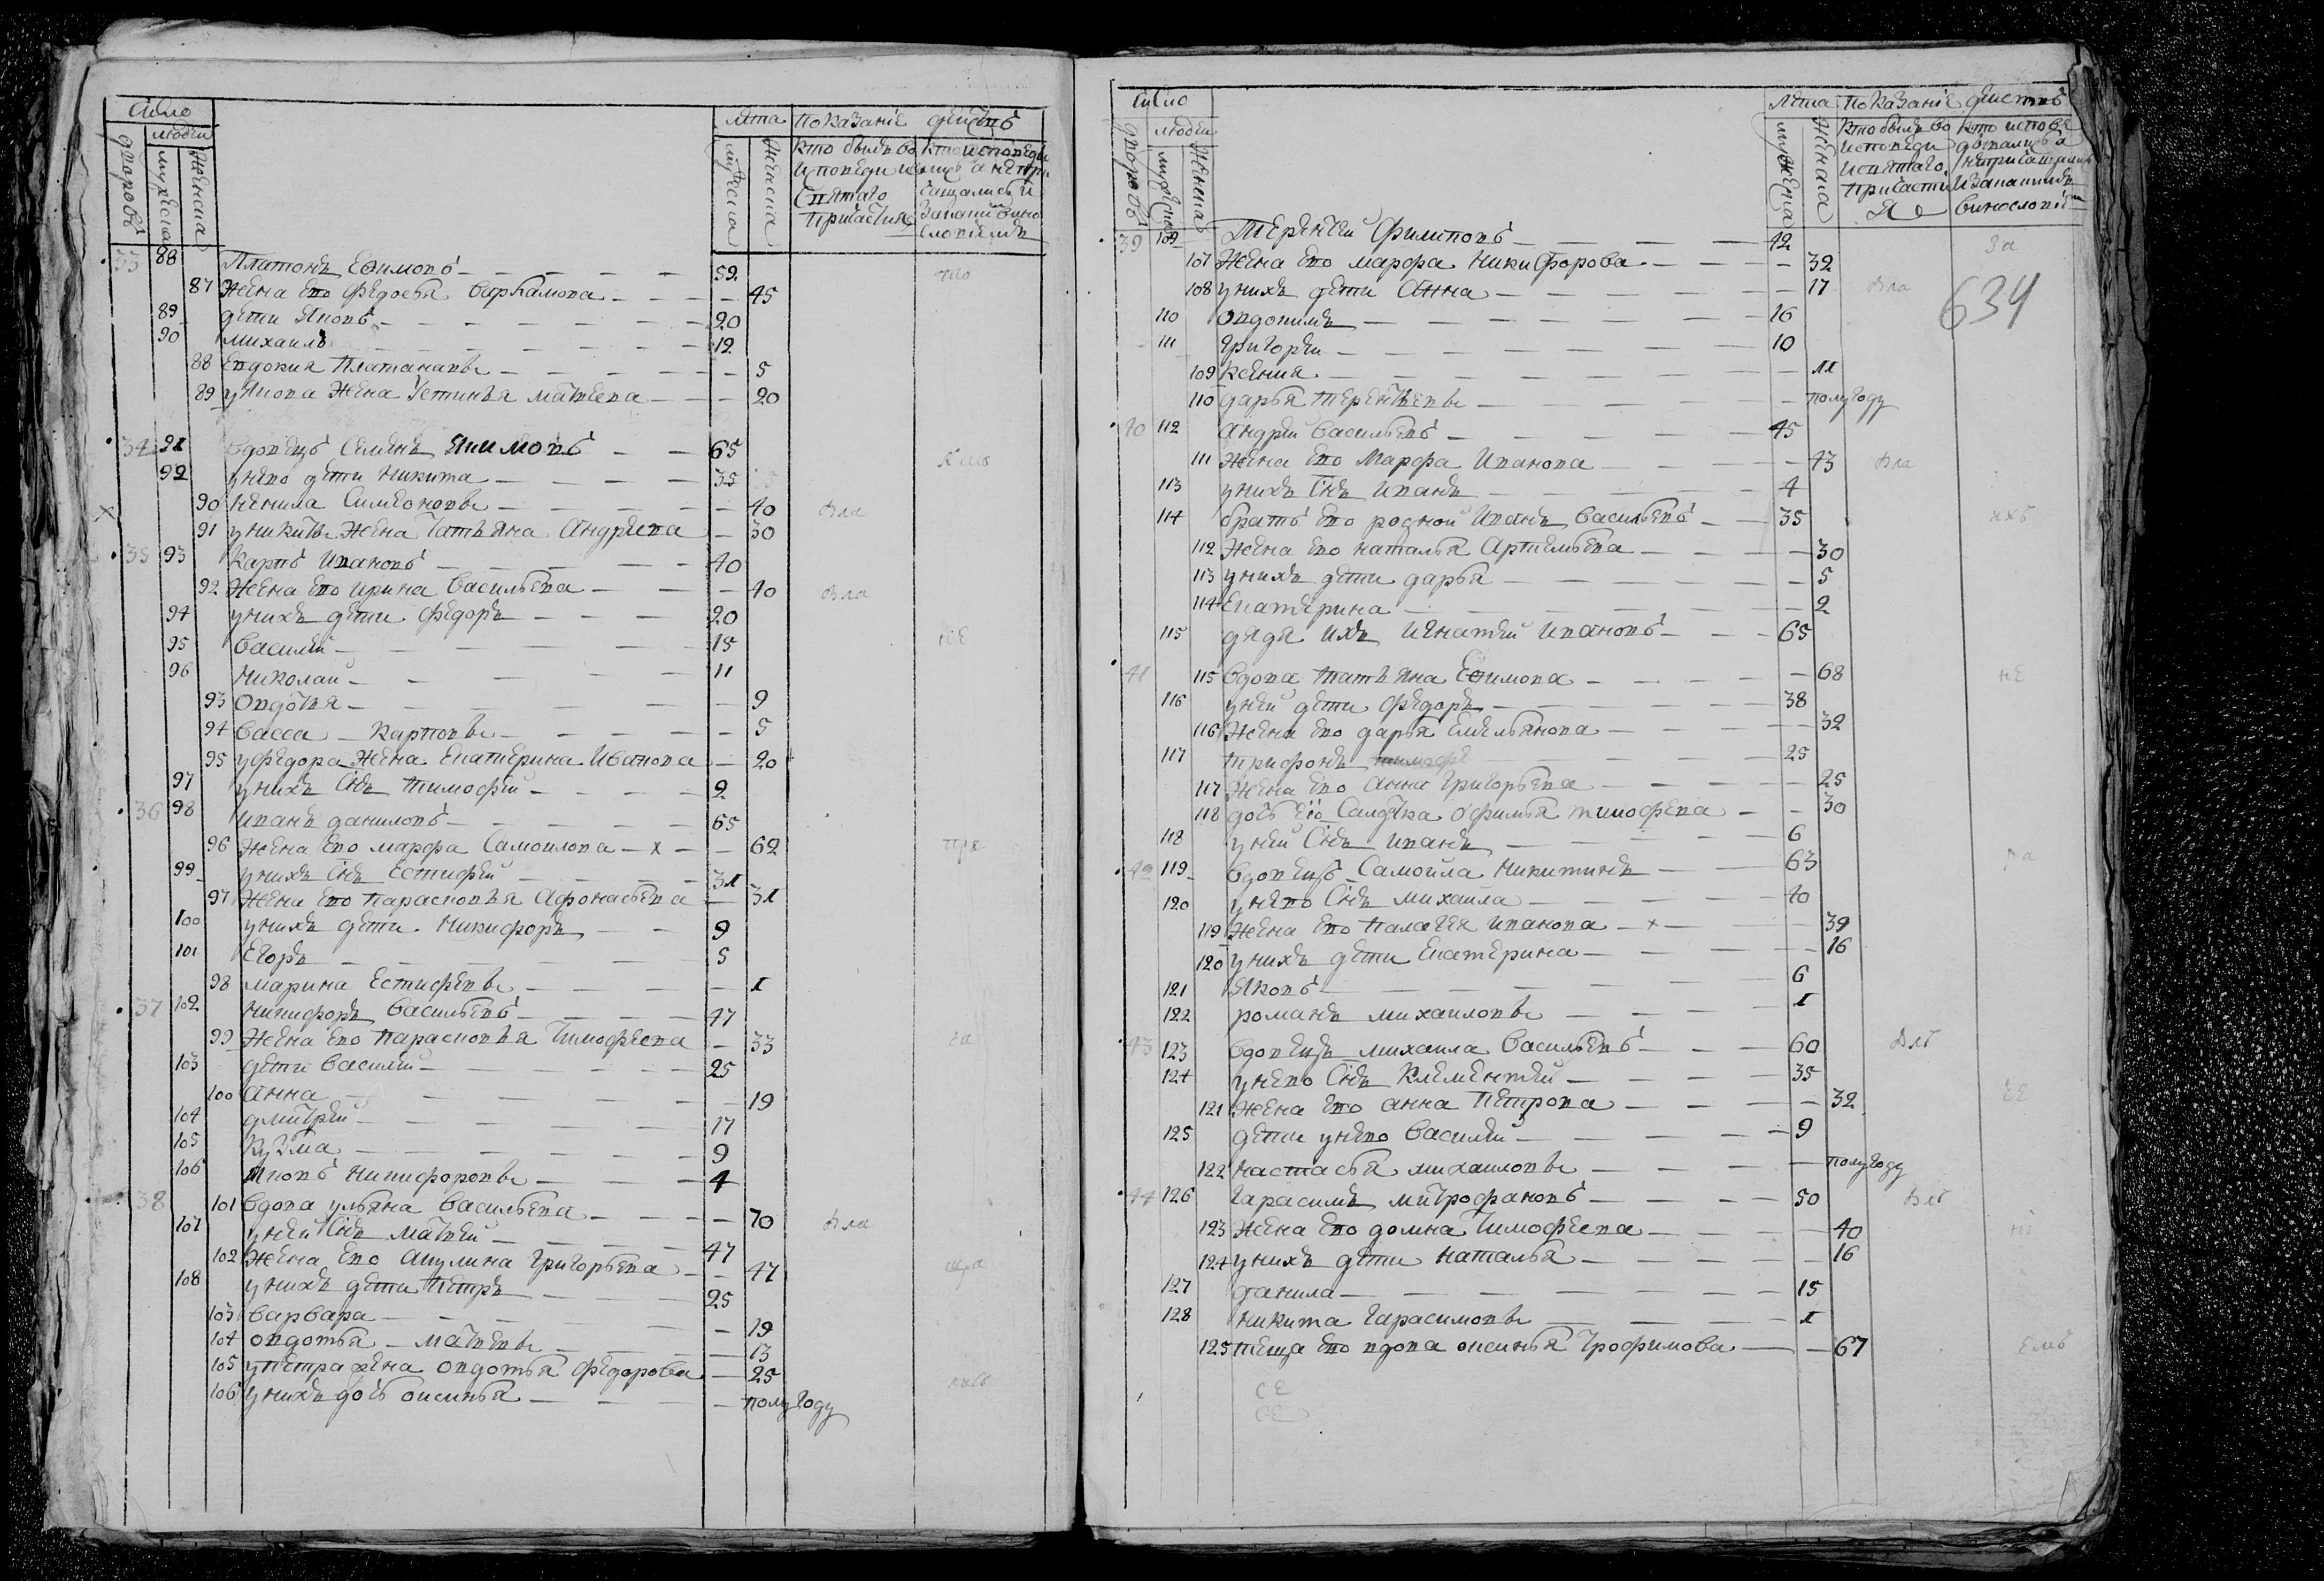 Число
людей
дворовъ
мужеска
женска
лѣта показаніе действъ
мужеска
женска
кто былъ во
исповеди и
святаго
причастия
33 88 Платонъ Ефимовъ 52
87 Жена ево Федосья Варламова 45
89 дети Яковъ 20
90 Михаилъ 12
88 Евдокия Платановы 5
89 у Якова Жена Устинья Матвеева 20
34 91 вдовецъ Семенъ 65
92 у него дети Никита 35
90 Ненила Симеоновы 40
91 у Никиты Жена Татьяна Андреева 30
35 93 Карпъ Ивановъ 40
92 Жена ево Ирина Васильева 40
94 у нихъ дети Федоръ 20
95 Василей 15
96 Николай 11
93 Овдотья 9
94 Васса Карповы 5
95 у Федора Жена Екатерина Иванова 20
97 у нихъ Снъ Тимофей 2
36 98 Иванъ Даниловъ 65
96 Жена ево Марфа Самоилова х 62
99 у нихъ Снъ Естифей 31
97 Жена ево Парасковья Афонасьева 31
100 у нихъ дети Никифоръ 9
101 Егоръ 5
98 Марина Естифеевы 1
37 102 Никифоръ Васильевъ 47
99 Жена ево Парасковья Тимофеева 33
103 дети Василий 25
100 Анна 19
104 Дмитрей 17
105 Кузма 9
106 Яковъ Никифоровы 4
38 101 вдова Ульяна Васильева 70
107 у ней Снъ Матвей 47
102 Жена ево Акулина Григорьева 47
108 у нихъ дети Петръ 25
103 Варвара 19
104 Овдотья Матвевы 13
105 у Петра жена Овдотья Федорова 25
106 у нихъ дочь Оксинья полугоду
Число
людей
дворовъ
мужеска
Женска
лѣта показаніе действъ
мужеска
Женска
кто былъ во
исповеди
и святаго
причасти
я
634
39 109 Терентей Филиповъ 42
107 Жена ево Марфа Никифорова 32
108 у нихъ дети Анна 17
110 Овдокимъ 16
111 Григорей 10
109 Ксения 11
110 Дарья Терентьевы полугоду
40 112 Андрей Васильевъ 45
111 Жена ево Марфа Иванова 43
113 у нихъ Снъ Иванъ 4
114 братъ ево родной Иванъ Васильевъ 35
112 Жена ево Наталья Артемьева 30
113 у нихъ дети Дарья 5
114 Екатерина 2
115 дядя ихъ Игнатей Ивановъ 65
41 115 вдова Татьяна Ефимова 68
116 у ней дети Федоръ 38
116 Жена ево Дарья Емельянова 32
117 Трифонъ 25
117 Жена ево Анна Григорьева 25
118 дочь её Салдтка Офимья Тимофеева 30
118 у ней Снъ Иванъ 6
42 119 вдовецъ Самойла Никитинъ 63
120 у него Снъ Михаила 40
119 Жена ево Палагея Иванова х 39
120 у нихъ дети Екатерина 16
121 Яковъ 6
122 Романъ Михаиловы 1
43 123 вдовецъ Михаила Васильевъ 60
124 у него Снъ Клементей 35
121 Жена ево Анна Петрова 32
125 дети у него Василей 9
122 Настасья Михаиловы полугоду
44 126 Гарасимъ Митрофановъ 50
123 Жена ево Домна Тимофеева 40
124 у нихъ дети Наталья 16
127 Данила 15
128 Никита Гарасимовы 1
125 теща ево вдова Оксинья Трофимова 67